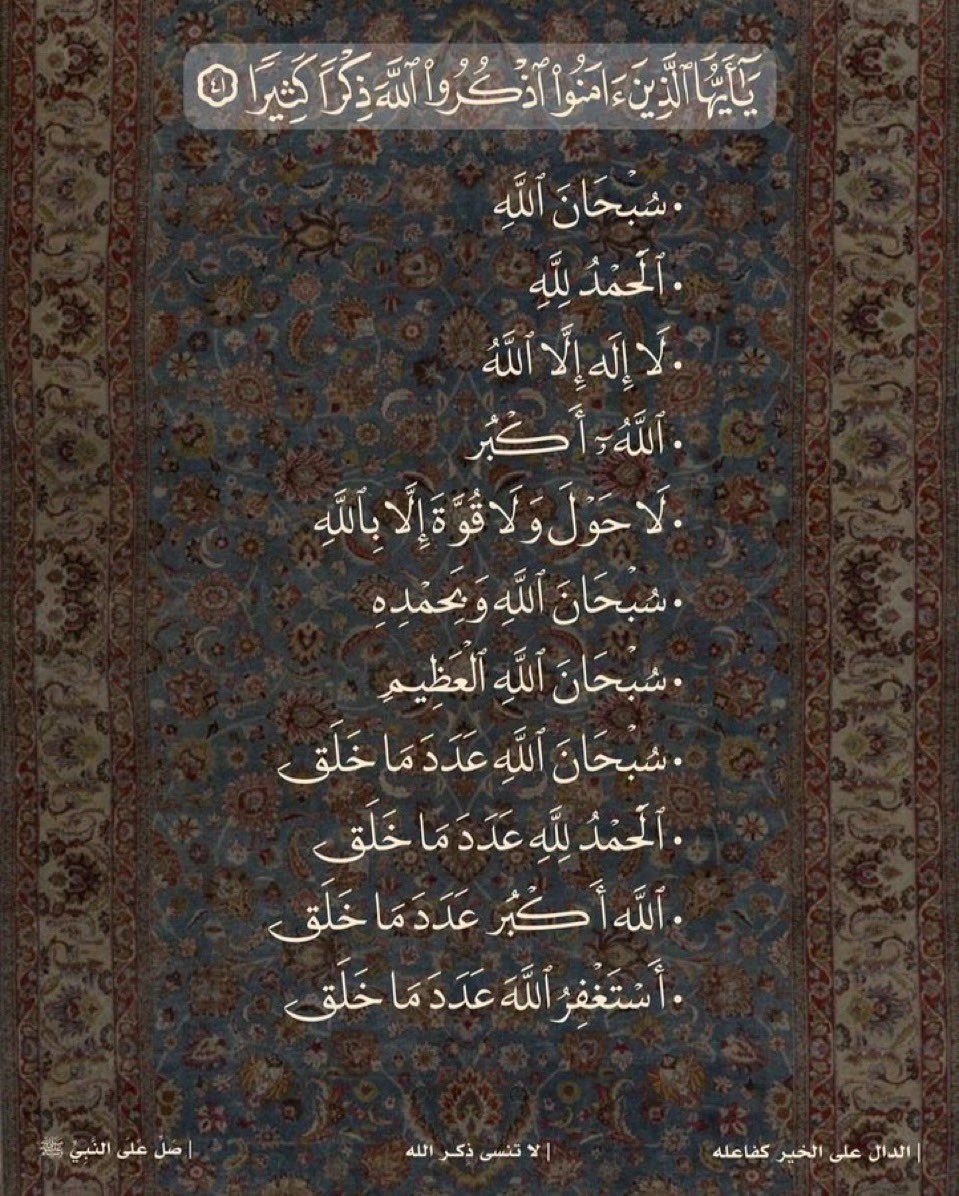 يَـٰٓأَيُّهَا ٱلَّذِينَ ءَامَنُوا۟ ٱذْكُرُوا۟ ٱللَّهَ ذِكْرًا كَثِيرًا ٤١
• سُبْحَانَ ٱللَّهِ
• ٱلْحَمْدُ لِلَّهِ
• لَا إِلَه إِلَّا ٱللَّهُ
• ٱللَّهُ أَكْبُر
• لَا حَوْلَ وَلَا قُوَّةَ إِلَّا بِٱللَّهِ
• سُبْحَانَ ٱللَّهِ وَبِحَمْدِهِ
• سُبْحَانَ ٱللَّهِ ٱلْعَظِيمِ
• سُبْحَانَ ٱللَّهِ عَدَدَ مَا خَلَق
• ٱلْحَمْدُ لِلَّهِ عَدَدَ مَا خَلَق
• ٱللَّه أَكْبُر عَدَدَ مَا خَلَق
• أَسْتَغْفِرُ ٱللَّهَ عَدَدَ مَا خَلَق
| الدال على الخير كفاعله | لا تنسى ذكر الله | صَلِّ على النَّبِيِّ ﷺ